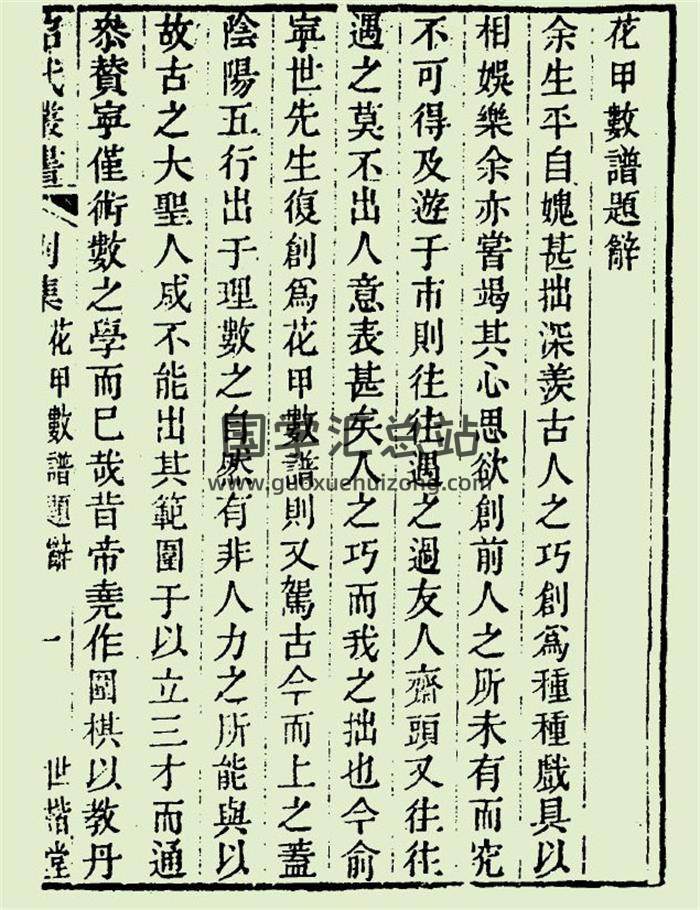 花甲數譜題辭
余生平自媿甚拙深羨古人之巧創爲種種戲具以
相娛樂余亦嘗竭其心思欲創前人之所未有而究
不可得及遊于市則往往遇之過友人齋頭又往往
遇之莫不出人意表甚矣人之巧而我之拙也今俞
寧世先生復創爲花甲數譜則又駕古今而上之蓋
陰陽五行出于理數之自然有非人力之所能與以
故古之大聖人咸不能出其範圍于以立三才而通
叅贊寧僅術數之學而已哉昔帝堯作圍棋以教丹
昭代叢書 別集 花甲數譜題辭 一 世楷堂
国学汇总站
www.guoxuehuizong.com